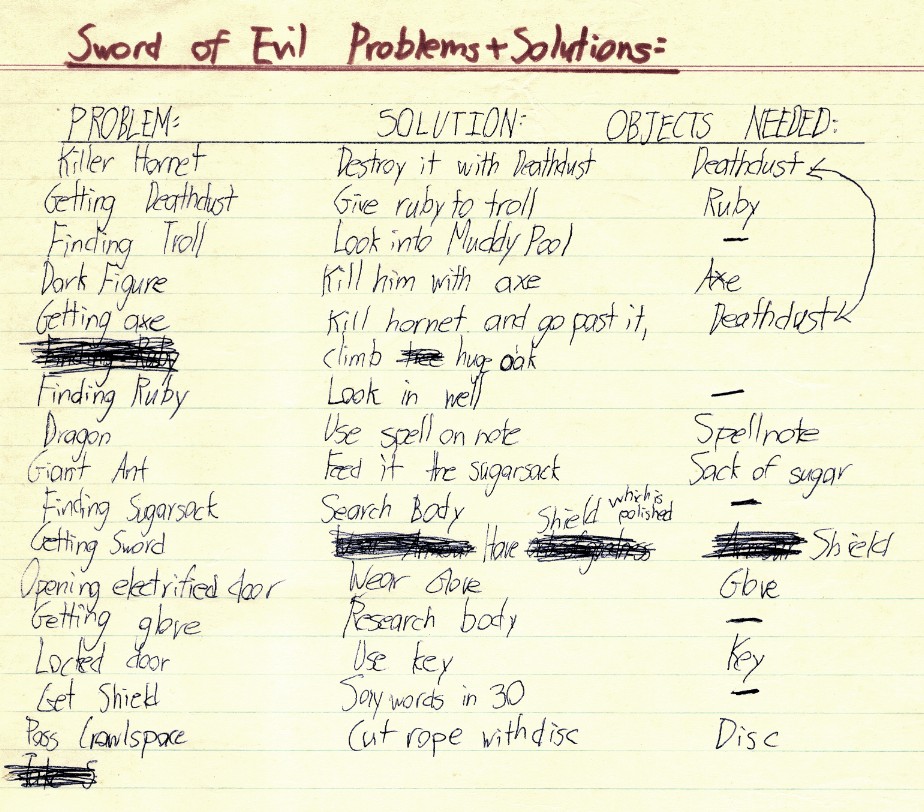 Sword of Evil Problems+Solutions:
PROBLEM: SOLUTION: OBJECTS NEEDED:
Killer Hornet Destroy it with Deathdust Deathdust
Getting Deathdust Give ruby to troll Ruby
Finding Troll Look into Muddy Pool —
Dark Figure Kill him with axe Axe
Getting axe Kill hornet and go past it, Deathdust
Finding Ruby climb tree huge oak
Finding Ruby Look in well —
Dragon Use spell on note Spellnote
Giant Ant Feed it the sugarsack Sack of sugar
Finding Sugarsack Search Body —
Shield which is polished
Getting Sword Have Shield
Opening electrified door Wear Glove Glove
Getting glove Research body —
Locked door Use key Key
Get Shield Say words in 30 —
Pass Crawlspace Cut rope with disc Disc